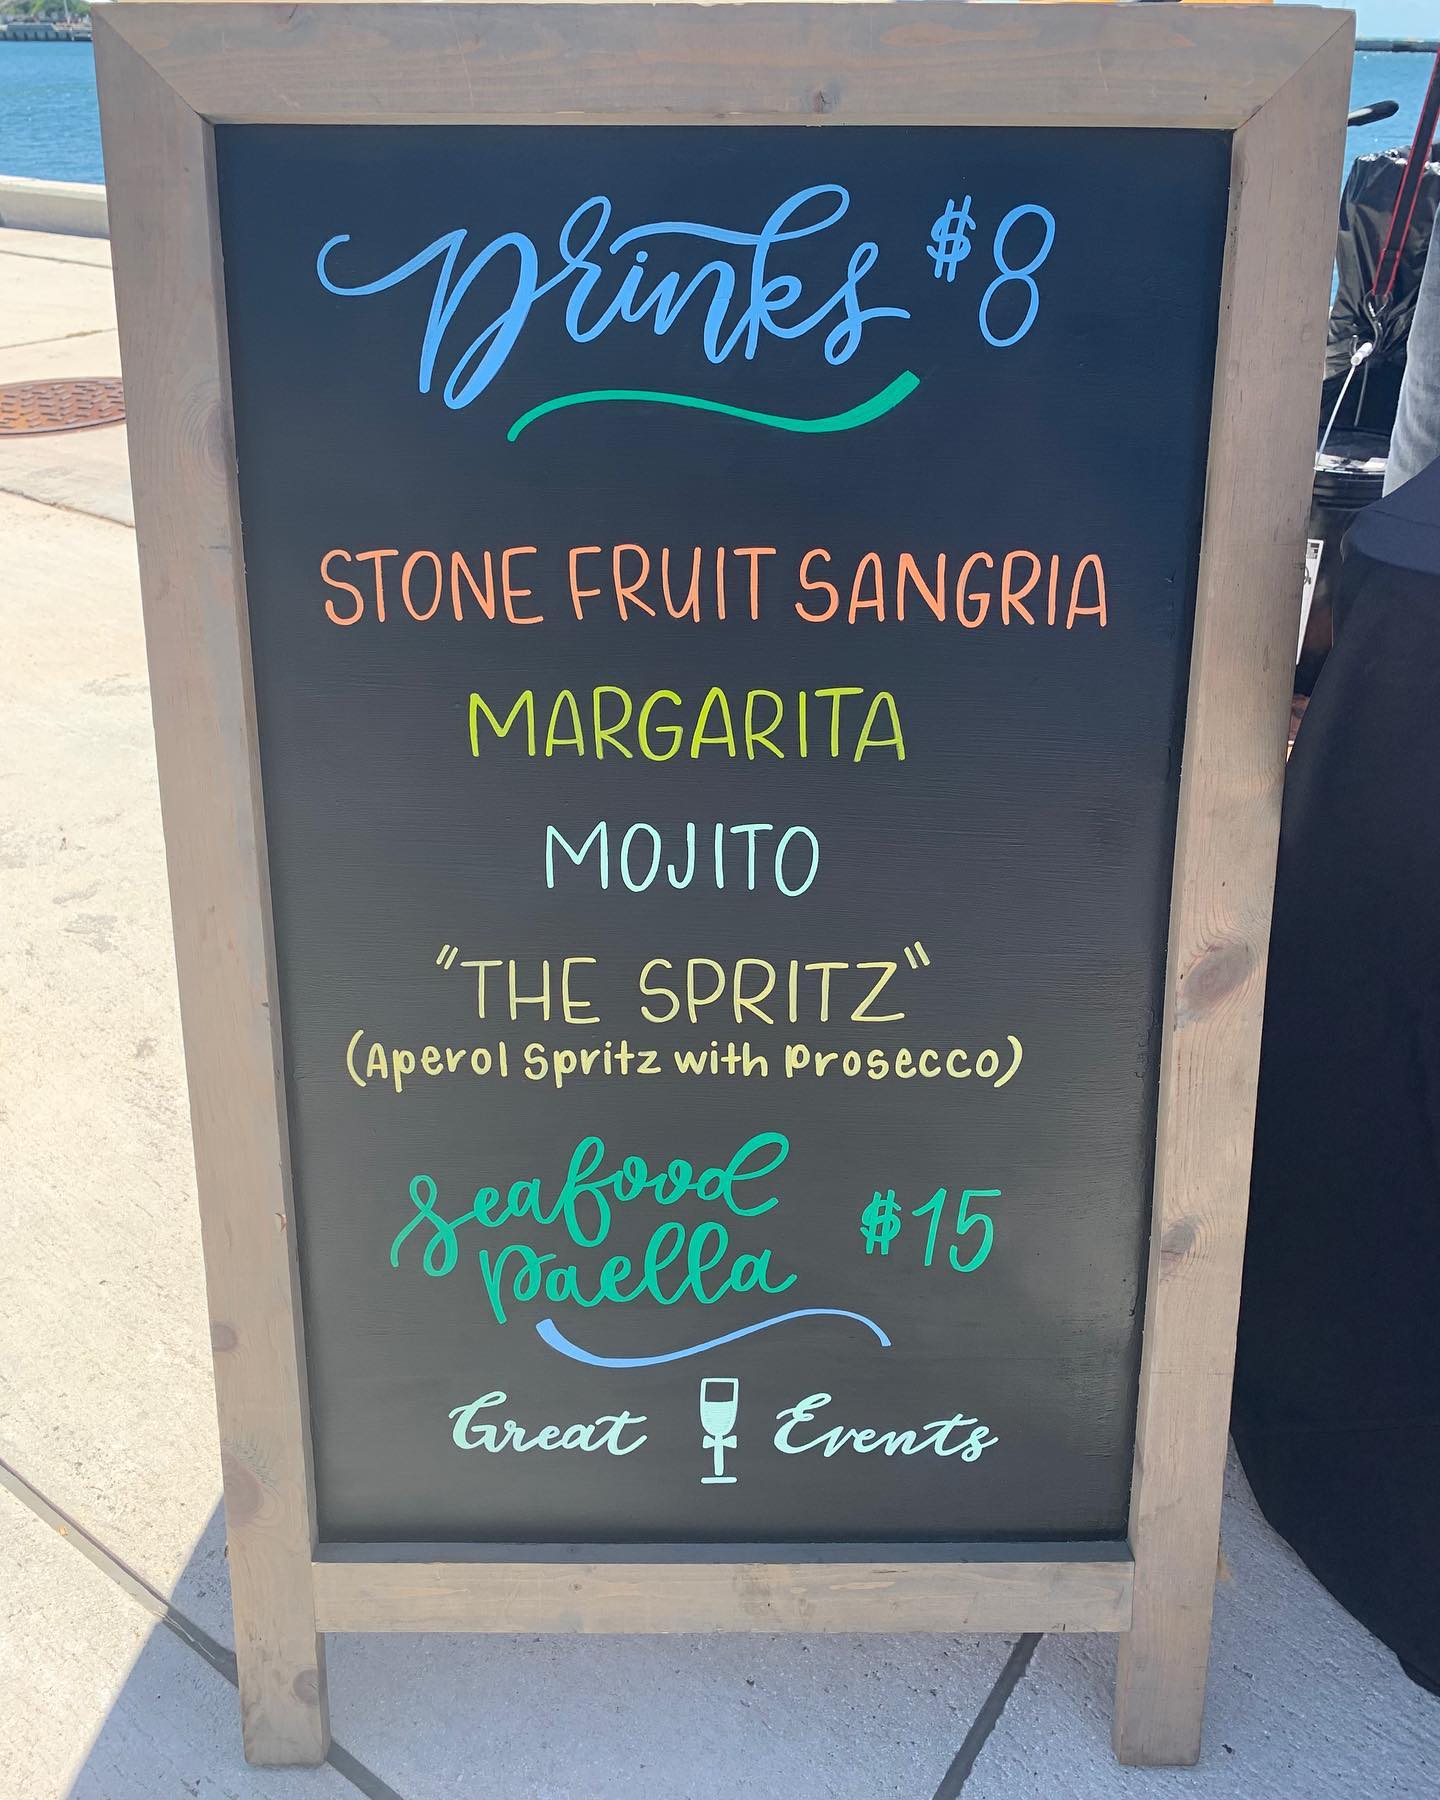 Drinks $8
STONE FRUIT SANGRIA
MARGARITA
MOJITO
"THE SPRITZ"
(Aperol Spritz with Prosecco)
Seafood
Paella $15
Great Events